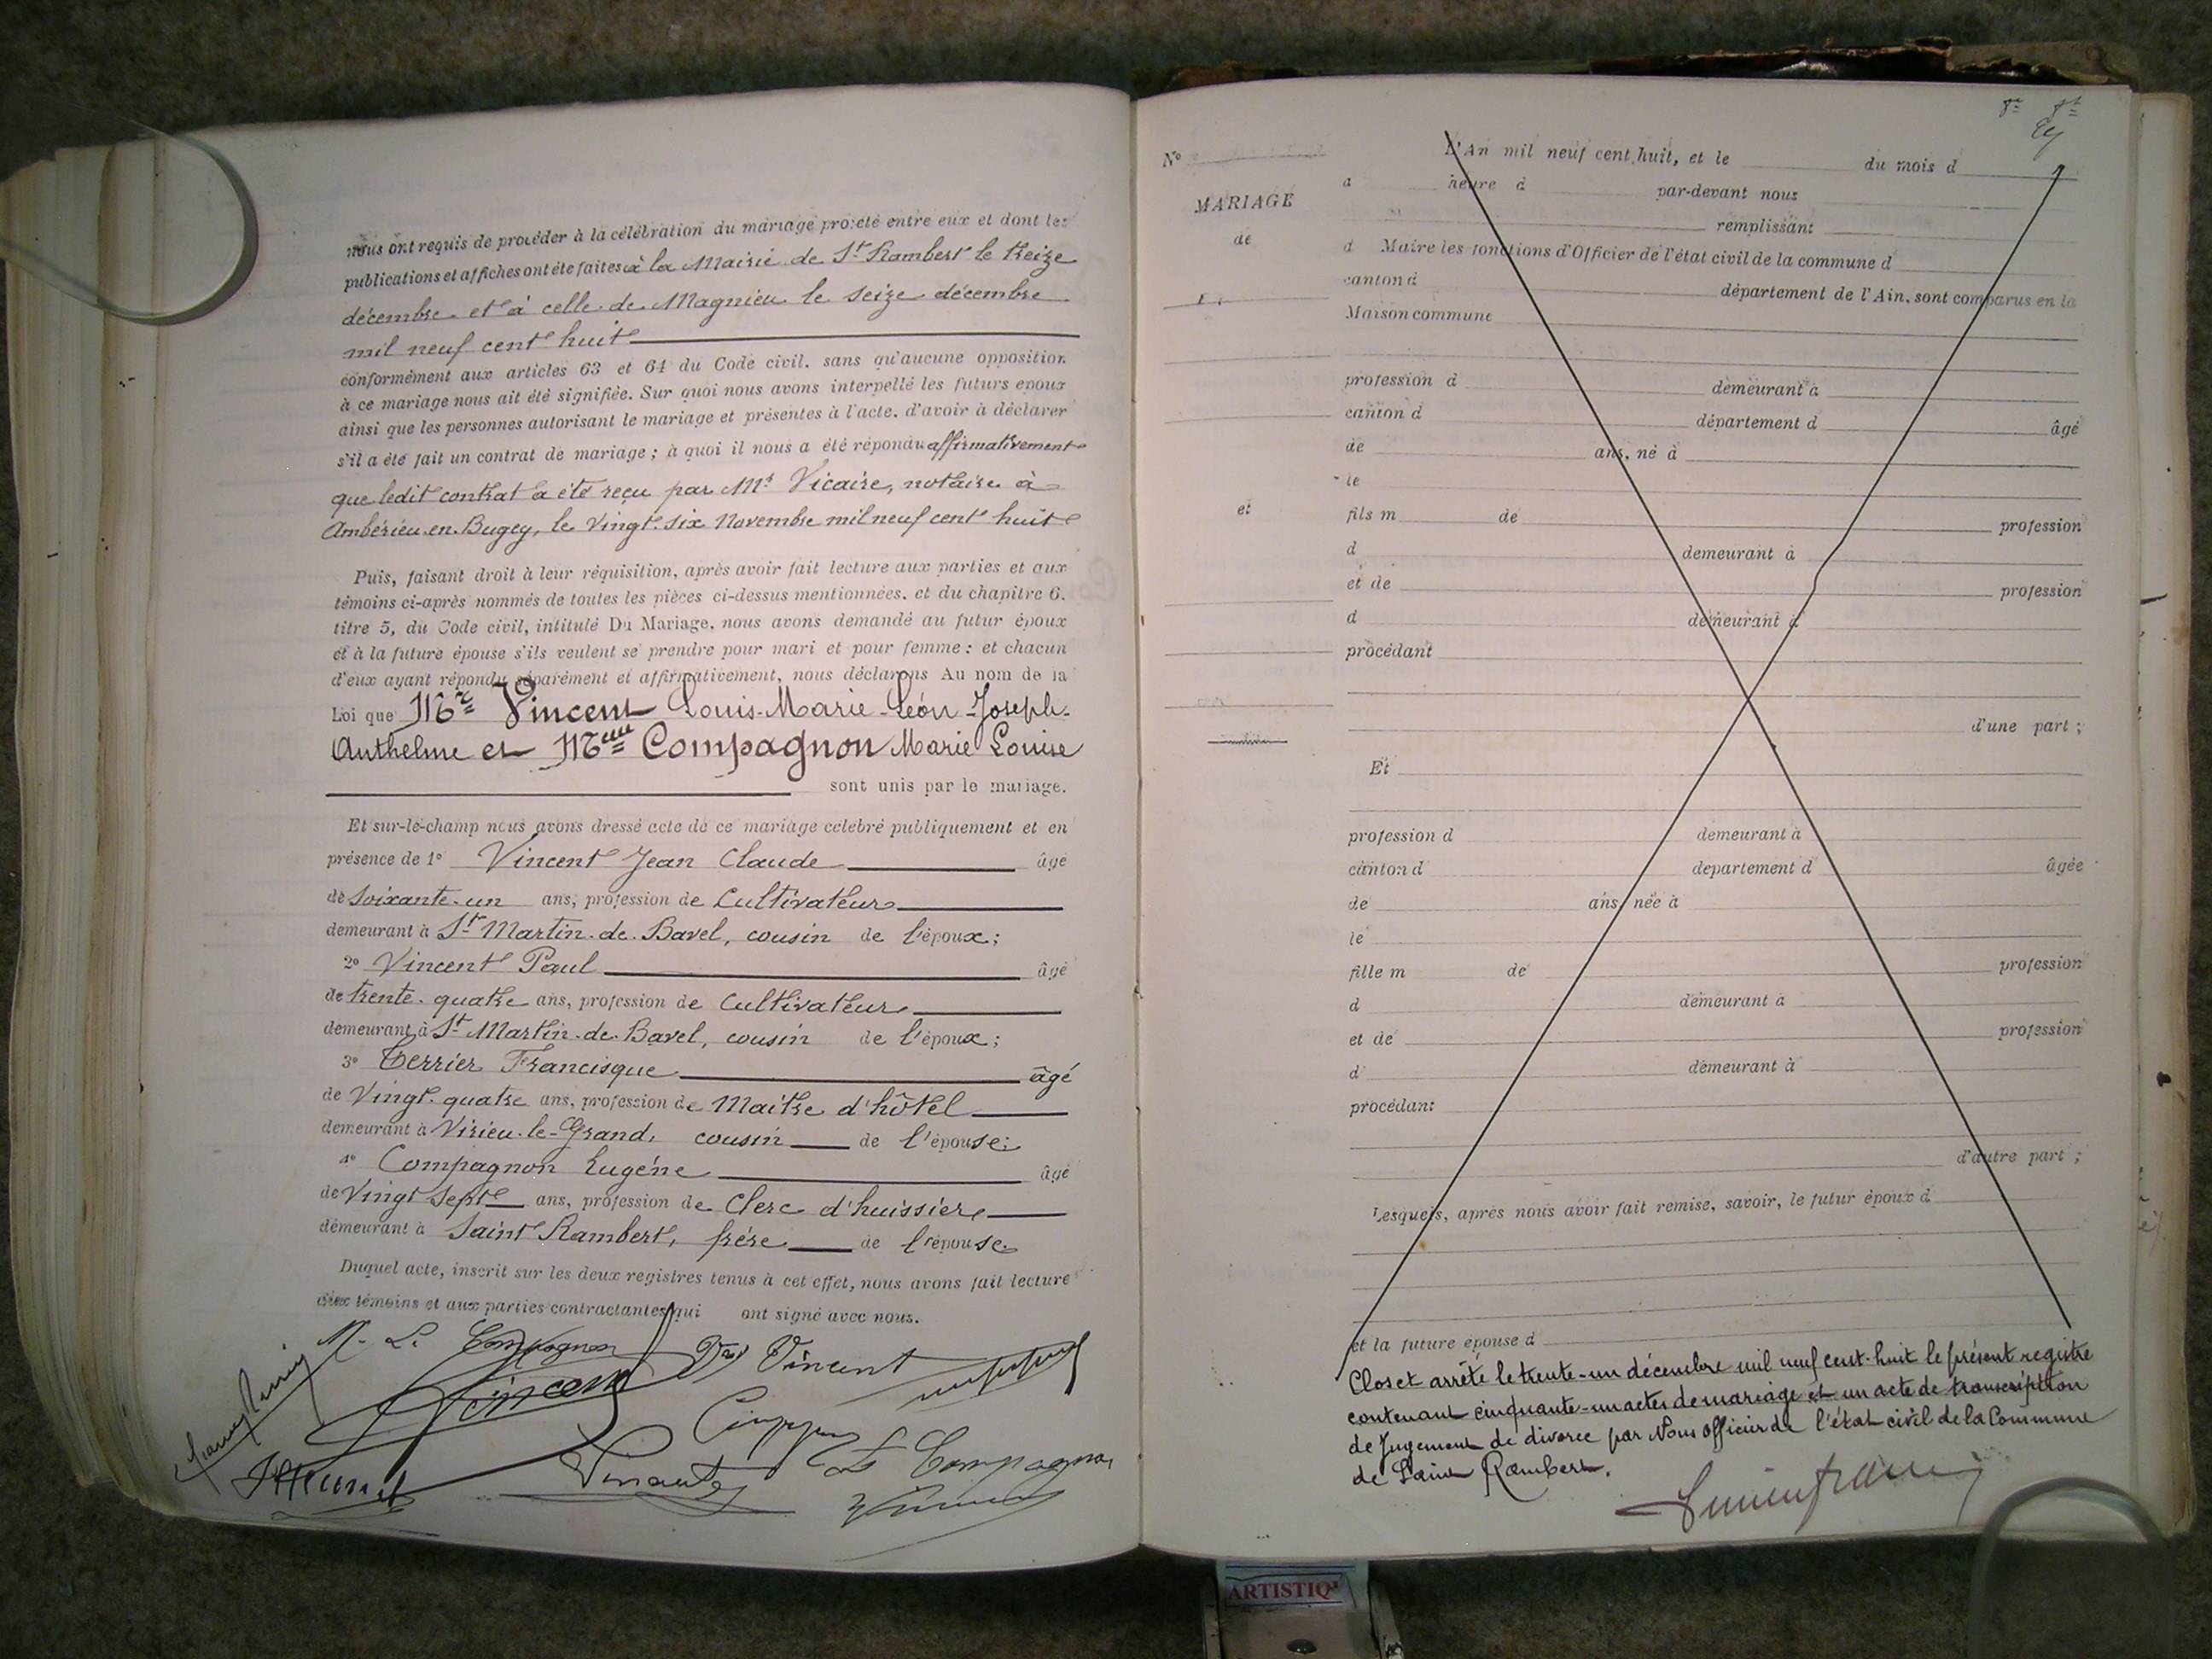 nous ont requis de procéder à la célébration du mariage projeté entre eux et dont les
publications et affiches ont été faites à la Mairie de St Rambert le treize
décembre et à celle de Magnieu le seize décembre
mil neuf cent huit
conformément aux articles 63 et 64 du Code civil. sans qu'aucune opposition
à ce mariage nous ait été signifiée. Sur quoi nous avons interpellé les futurs époux
ainsi que les personnes autorisant le mariage et présentes à l'acte. d'avoir à déclarer
s'il a été fait un contrat de mariage ; à quoi il nous a été répondu affirmativement
que ledit contrat a été reçu par Me Vicaire, notaire à
Ambérieu-en-Bugey, le vingt six Novembre mil neuf cent huit
Puis, faisant droit à leur réquisition, après avoir fait lecture aux parties et aux
témoins ci-après nommés de toutes les pièces ci-dessus mentionnées. et du chapitre 6.
titre 5, du Code civil, intitulé Du Mariage, nous avons demandé au futur époux
et à la future épouse s'ils veulent se prendre pour mari et pour femme : et chacun
d'eux ayant répondu séparément et affirmativement, nous déclarons Au nom de la
Loi que Mr Vincent Louis-Marie-Léon-Joseph-
Anthelme et Melle Compagnon Marie Louise
sont unis par le mariage.
Et sur-le-champ nous avons dressé acte de ce mariage célébré publiquement et en
présence de 1° Vincent Jean Claude âgé
de soixante-un ans, profession de Cultivateur
demeurant à St Martin-de-Bavel, cousin de l'époux ;
2° Vincent Paul âgé
de trente-quatre ans, profession de Cultivateur
demeurant à St Martin-de-Bavel, cousin de l'époux ;
3° Terrier Francisque âgé
de Vingt-quatre ans, profession de Maître d'hôtel
demeurant à Virieu-le-Grand, cousin de l'épouse ;
4° Compagnon Eugène âgé
de Vingt sept ans, profession de Clerc d'huissier
demeurant à Saint Rambert, frère de l'épouse
Duquel acte, inscrit sur les deux registres tenus à cet effet, nous avons fait lecture
aux témoins et aux parties contractantes qui ont signé avec nous.
M. L. Compagnon
Vincent
Vincent
Compagnon
N°
MARIAGE
de
et
L'An mil neuf cent huit, et le du mois d
a heure d par-devant nous
remplissant
d Maire les fonctions d'Officier de l'état civil de la commune d
canton d département de l'Ain, sont comparus en la
Maison commune
profession d demeurant à
canton d département d âgé
de ans, né à
le
fils m de profession
d demeurant à
et de profession
d demeurant à
procédant
d'une part ;
Et
profession d demeurant à
canton d département d âgée
de ans, née à
le
fille m de profession
d demeurant à
et de profession
d demeurant à
procédant
d'autre part ;
Lesquels, après nous avoir fait remise, savoir, le futur époux d
et la future épouse d
Clos et arrêté le trente-un décembre mil neuf cent-huit le présent registre
contenant cinquante-un actes de mariage et un acte de transcription
de Jugement de divorce par Nous Officier de l'état civil de la Commune
de Saint Rambert.
ARTISTIQ